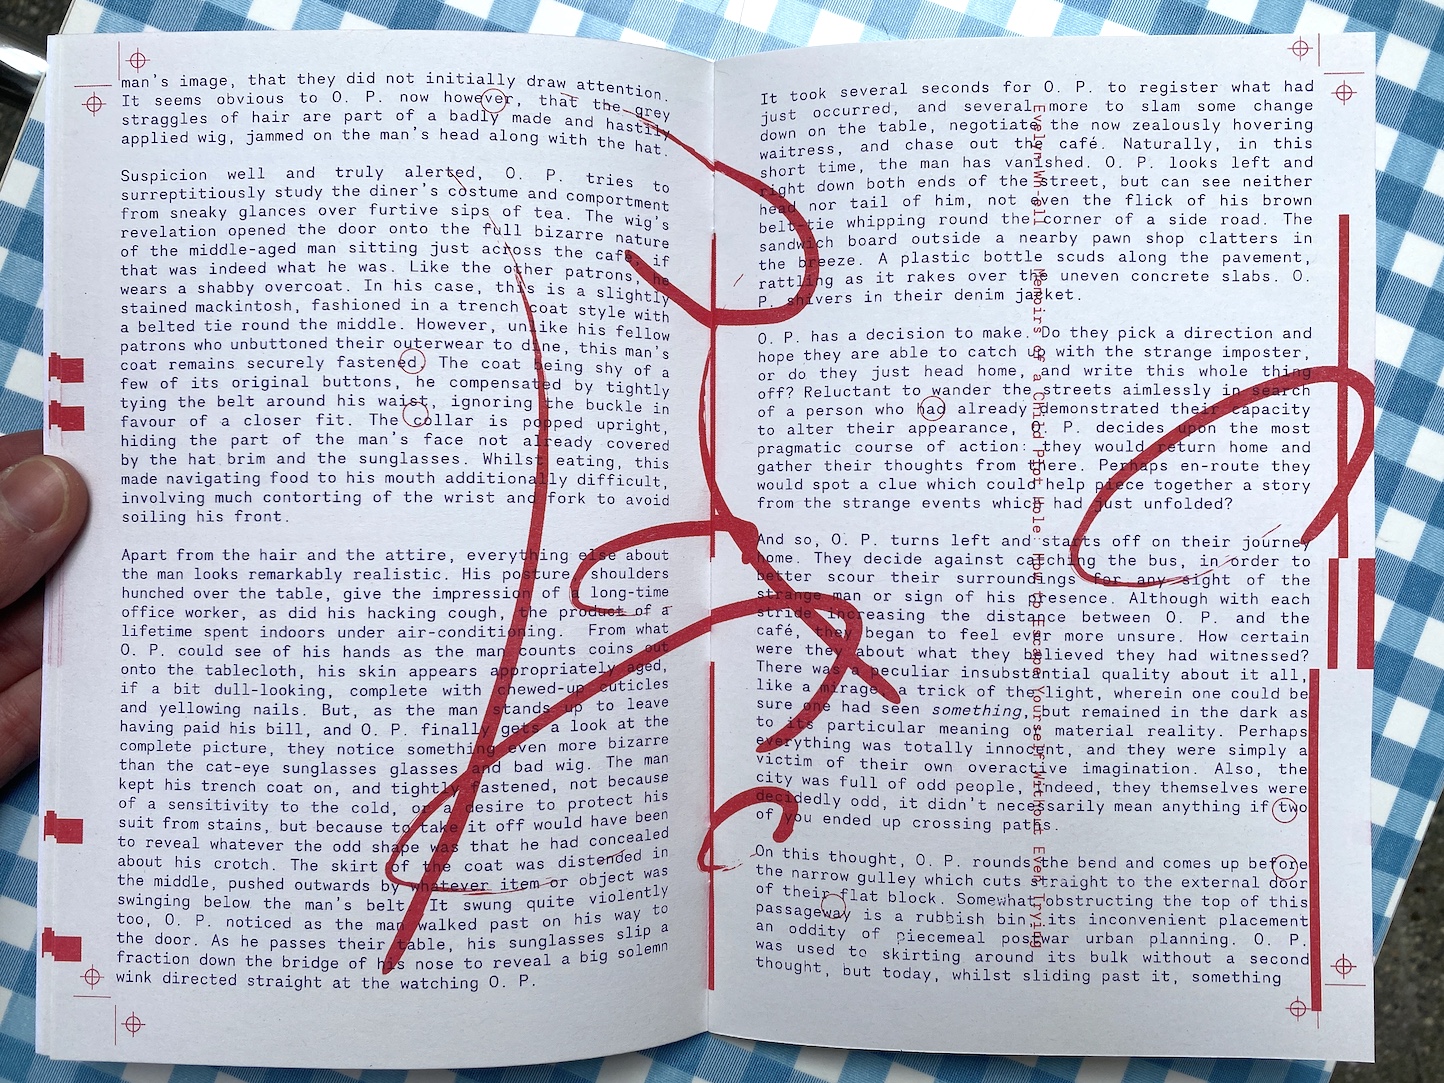 man's image, that they did not initially draw attention.
It seems obvious to O. P. now however, that the grey
straggles of hair are part of a badly made and hastily
applied wig, jammed on the man's head along with the hat.
Suspicion well and truly alerted, O. P. tries to
surreptitiously study the diner's costume and comportment
from sneaky glances over furtive sips of tea. The wig's
revelation opened the door onto the full bizarre nature
of the middle-aged man sitting just across the café, if
that was indeed what he was. Like the other patrons, he
wears a shabby overcoat. In his case, this is a slightly
stained mackintosh, fashioned in a trench coat style with
a belted tie round the middle. However, unlike his fellow
patrons who unbuttoned their outerwear to dine, this man's
coat remains securely fastened. The coat being shy of a
few of its original buttons, he compensated by tightly
tying the belt around his waist, ignoring the buckle in
favour of a closer fit. The collar is popped upright,
hiding the part of the man's face not already covered
by the hat brim and the sunglasses. Whilst eating, this
made navigating food to his mouth additionally difficult,
involving much contorting of the wrist and fork to avoid
soiling his front.
Apart from the hair and the attire, everything else about
the man looks remarkably realistic. His posture, shoulders
hunched over the table, give the impression of a long-time
office worker, as did his hacking cough, the product of a
lifetime spent indoors under air-conditioning. From what
O. P. could see of his hands as the man counts coins out
onto the tablecloth, his skin appears appropriately aged,
if a bit dull-looking, complete with chewed-up cuticles
and yellowing nails. But, as the man stands up to leave
having paid his bill, and O. P. finally gets a look at the
complete picture, they notice something even more bizarre
than the cat-eye sunglasses glasses and bad wig. The man
kept his trench coat on, and tightly fastened, not because
of a sensitivity to the cold, or a desire to protect his
suit from stains, but because to take it off would have been
to reveal whatever the odd shape was that he had concealed
about his crotch. The skirt of the coat was distended in
the middle, pushed outwards by whatever item or object was
swinging below the man's belt. It swung quite violently
too, O. P. noticed as the man walked past on his way to
the door. As he passes their table, his sunglasses slip a
fraction down the bridge of his nose to reveal a big solemn
wink directed straight at the watching O. P.
It took several seconds for O. P. to register what had
just occurred, and several more to slam some change
down on the table, negotiate the now zealously hovering
waitress, and chase out the café. Naturally, in this
short time, the man has vanished. O. P. looks left and
right down both ends of the street, but can see neither
head nor tail of him, not even the flick of his brown
belt-tie whipping round the corner of a side road. The
sandwich board outside a nearby pawn shop clatters in
the breeze. A plastic bottle scuds along the pavement,
rattling as it rakes over the uneven concrete slabs. O.
P. shivers in their denim jacket.
O. P. has a decision to make. Do they pick a direction and
hope they are able to catch up with the strange imposter,
or do they just head home, and write this whole thing
off? Reluctant to wander the streets aimlessly in search
of a person who had already demonstrated their capacity
to alter their appearance, O. P. decides upon the most
pragmatic course of action: they would return home and
gather their thoughts from there. Perhaps en-route they
would spot a clue which could help piece together a story
from the strange events which had just unfolded?
And so, O. P. turns left and starts off on their journey
home. They decide against catching the bus, in order to
better scour their surroundings for any sight of the
strange man or sign of his presence. Although with each
stride increasing the distance between O. P. and the
café, they began to feel ever more unsure. How certain
were they about what they believed they had witnessed?
There was a peculiar insubstantial quality about it all,
like a mirage, a trick of the light, wherein one could be
sure one had seen something, but remained in the dark as
to its particular meaning or material reality. Perhaps
everything was totally innocent, and they were simply a
victim of their own overactive imagination. Also, the
city was full of odd people, indeed, they themselves were
decidedly odd, it didn't necessarily mean anything if two
of you ended up crossing paths.
On this thought, O. P. rounds the bend and comes up before
the narrow gulley which cuts straight to the external door
of their flat block. Somewhat obstructing the top of this
passageway is a rubbish bin, its inconvenient placement
an oddity of piecemeal postwar urban planning. O. P.
was used to skirting around its bulk without a second
thought, but today, whilst sliding past it, something
Memoirs of a Child Plot Hole: How to Escape Yourself Without Even Trying